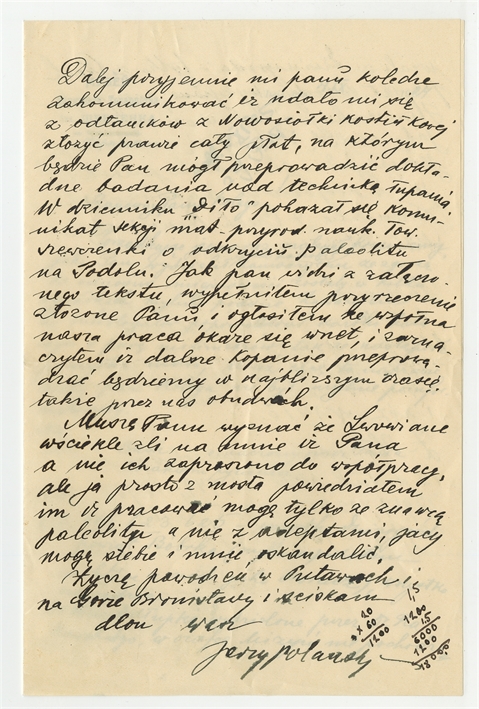 Dalej przyjemnie mi panu koledze
zakomunikować iż udało mi się
z odłamków z Nowosiółki Kostiukowej
złożyć prawie cały płat, na którym
będzie Pan mógł przeprowadzić dokła-
dne badania nad techniką łupania.
W dzienniku "Diło" pokazał się komu-
nikat sekcji mat. przyrod. nauk. Tow.
Szewczenki o odkryciu paleolitu
na Podolu. Jak pan widzi z załączo-
nego tekstu, wypełniłem przyrzeczenie
złożone Panu, i ogłosiłem że wspólna
nasza praca okaże się wnet, i zazna-
czyłem iż dalsze kopanie przeprowa-
dzać będziemy w najbliższym czasie
także przez nas obudwóch.
Muszę Panu wyznać że Lwowianie
wściekle źli na mnie iż Pana
a nie ich zaproszono do współpracy,
ale ja prosto z mosta powiedziałem
im iż pracować mogę tylko ze znawcą
paleolitu a nie z adeptami, jacy
mogą siebie i mnie oskandalić.
Życzę powodzeń w Puławach i
na Górze Bronisławy i ściskam
dłoń
Jerzy Polański
20
x 60
1200
15
1200
15
6000
1200
18000